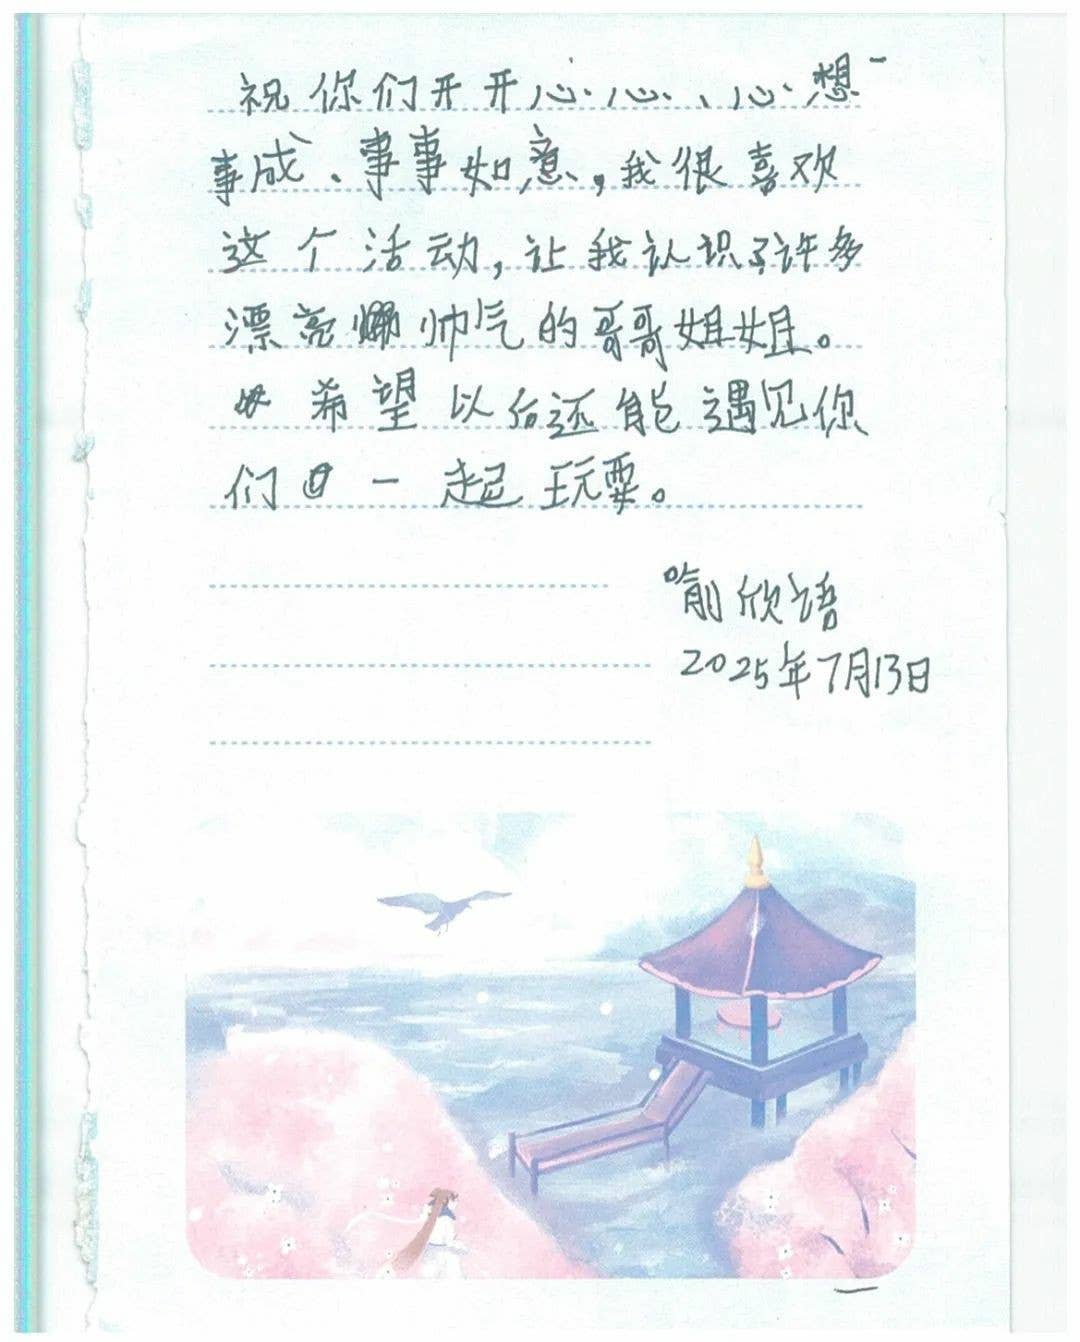 祝你们开开心心、心想
事成、事事如意,我很喜欢
这个活动,让我认识了许多
漂亮帅气的哥哥姐姐。
希望以后还能遇见你
们一起玩耍。
喻欣语
2025年7月13日